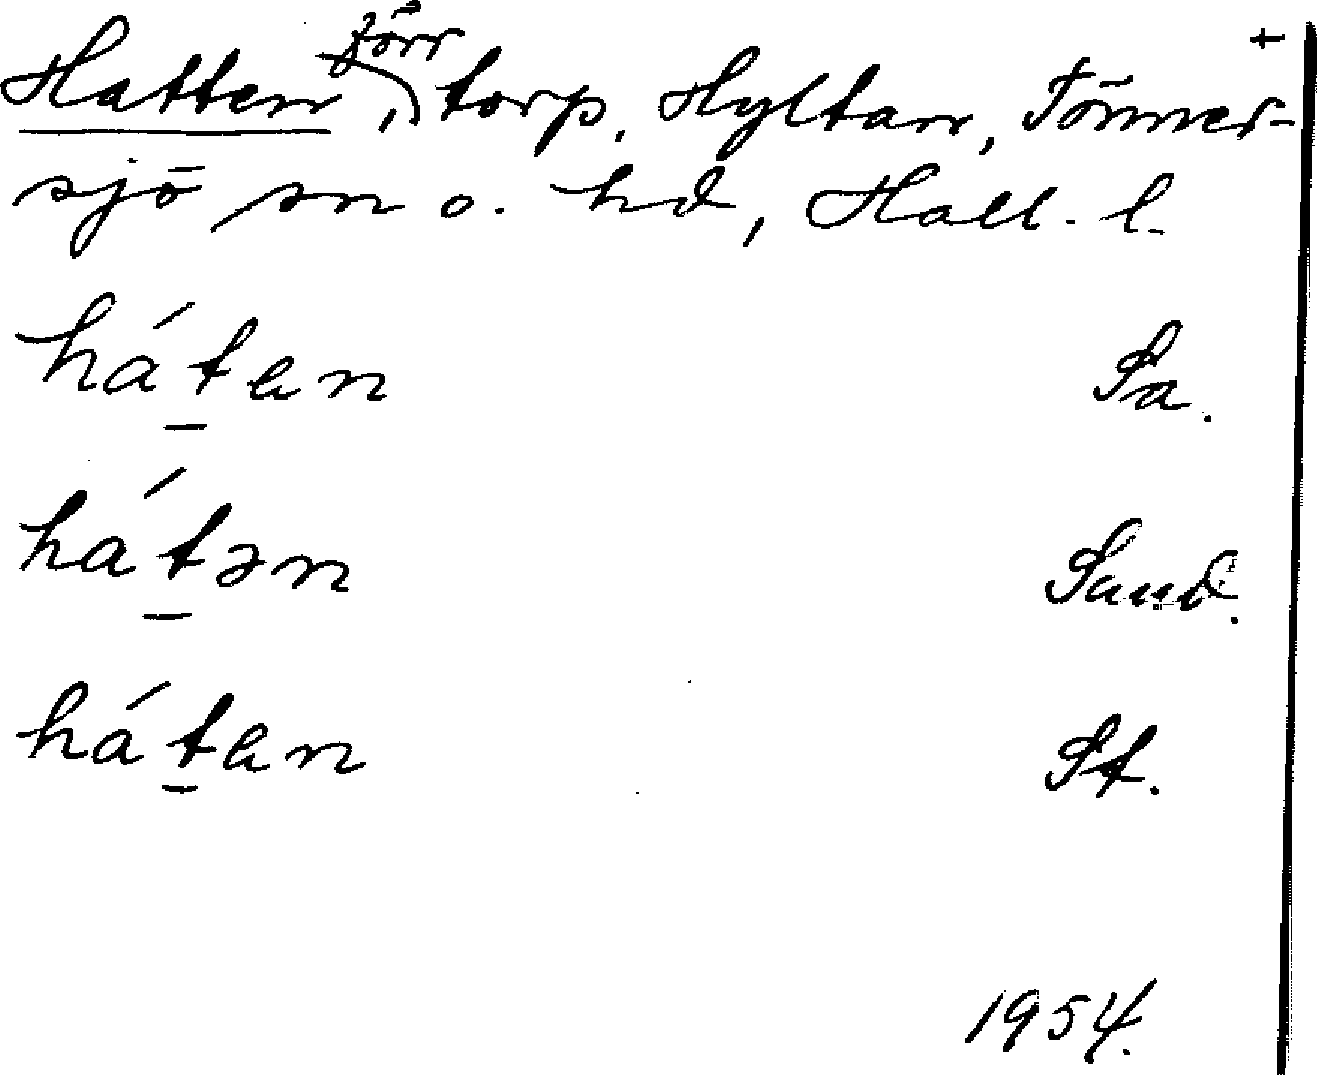 Hatten, förr torp, Hyltan, Tönner- +
sjö sn o. hd, Hall. l.
há̱ten Sa.
há̱tən Sand.
há̱ten St.
1954.